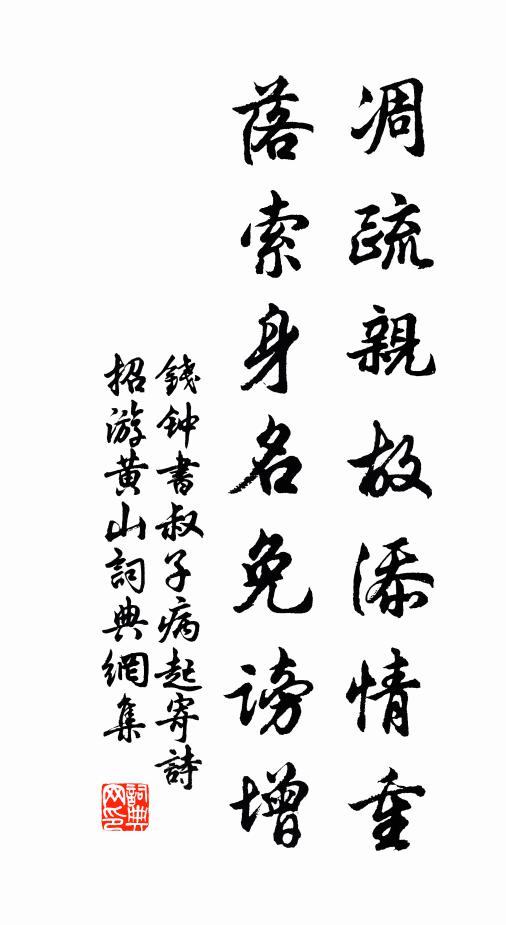 凋疏親故添情重
落索身名免謗增
錢钟書叔子病起寄詩
招游黄山詞典網集
詞典
网印